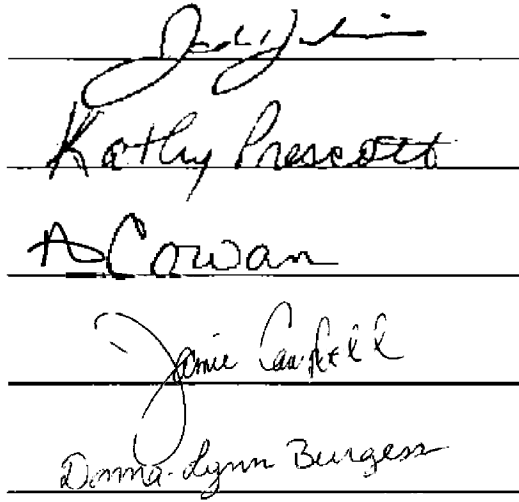 Kathy Prescott
A Cowan
Jamie Campbell
Donna-Lynn Burgess